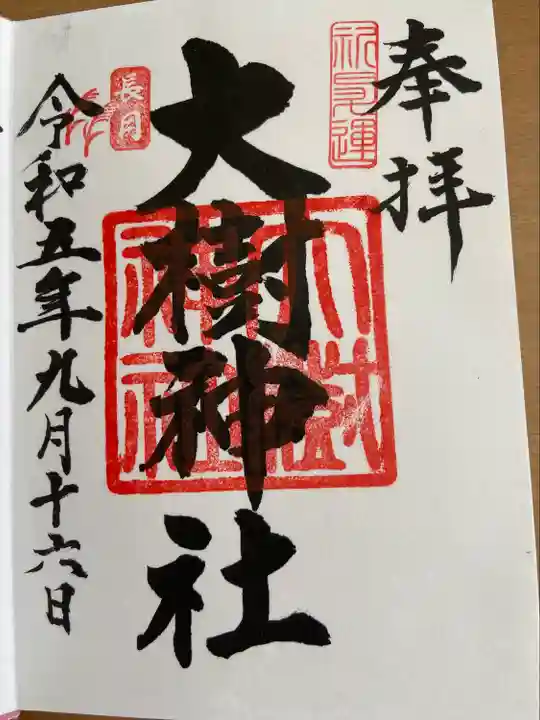 奉拝
大樹神社
大樹神社
長月
令和五年九月十六日